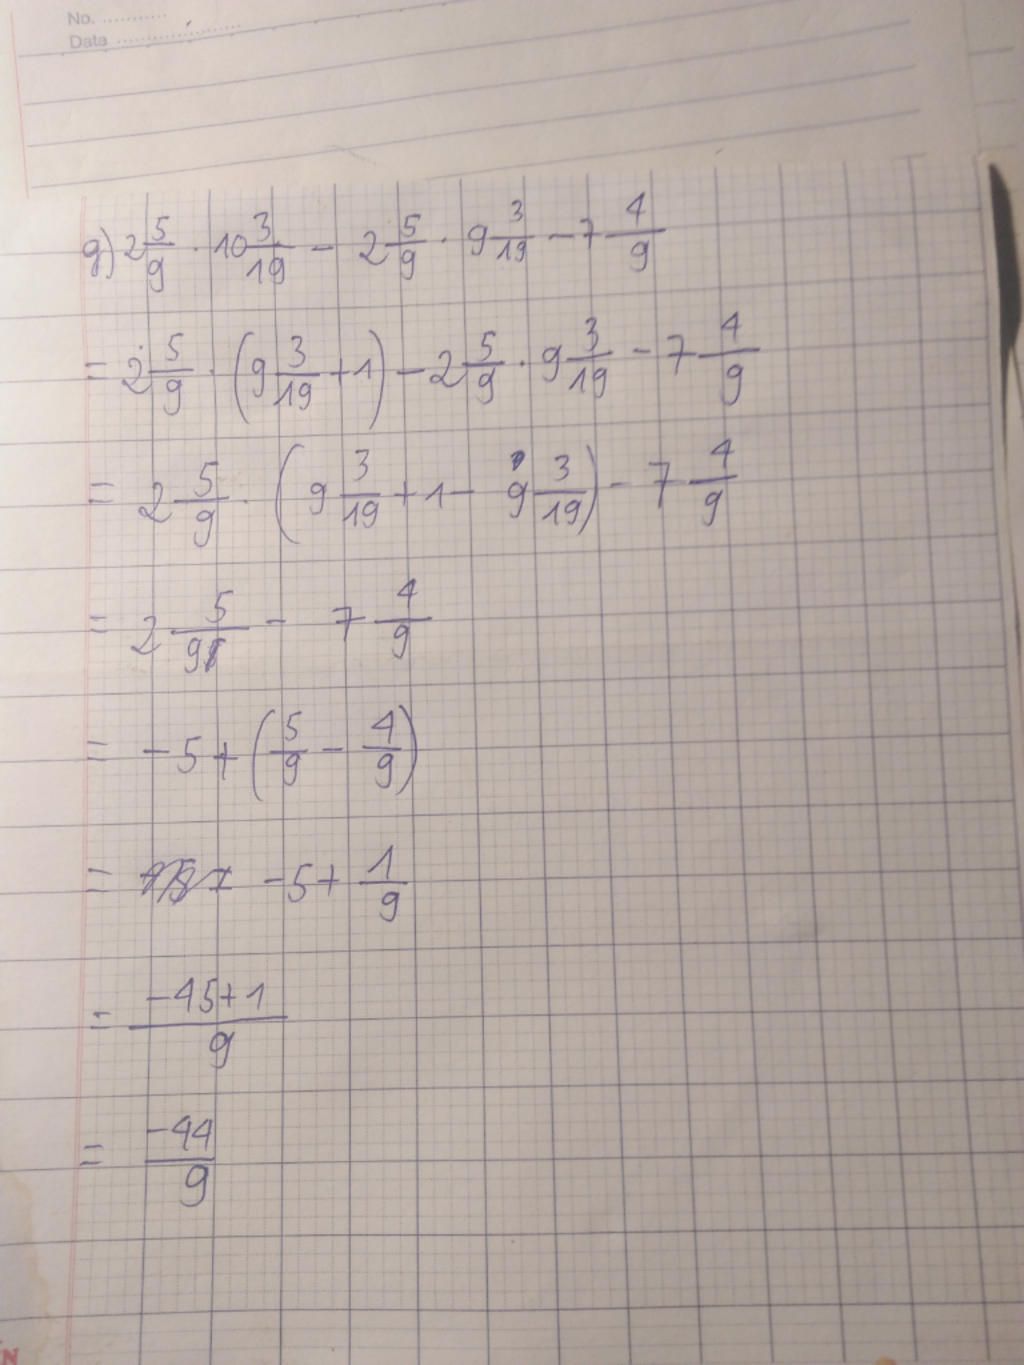 No. ...........
Date .....................
g) 2 5/9 · 10 3/19 - 2 5/9 · 9 3/19 - 7 4/9
= 2 5/9 · (9 3/19 + 1) - 2 5/9 · 9 3/19 - 7 4/9
= 2 5/9 · (9 3/19 + 1 - 9 3/19) - 7 4/9
= 2 5/9 - 7 4/9
= -5 + (5/9 - 4/9)
= -5 + 1/9
= -45+1/9
= -44/9
N